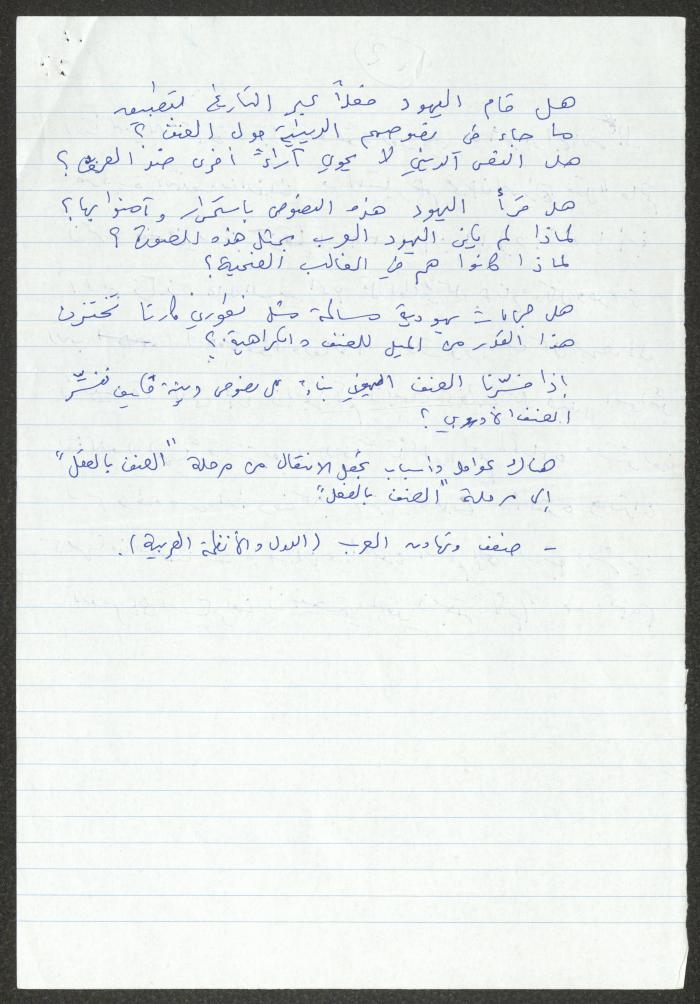 هل قام اليهود فعلاً عبر التاريخ بتطبيق
ما جاء في نصوصهم الدينية حول العنف ؟
هل النص الديني لا يحوي آراءً أخرى ضد العنف ؟
هل قرأ اليهود هذه النصوص باستمرار وآمنوا بها ؟
لماذا لم يأت اليهود العرب بمثل هذه الصورة ؟
لماذا كانوا هم في الغالب الضحية ؟
هل جماعات يهودية مسالمة مثل نطوري كارتا تختزن
هذا القدر من الميل للعنف والكراهية ؟
إذا فسّرنا العنف الصهيوني بناءً على نصوص دينية فكيف نفسّر
العنف الأوروبي ؟
هناك عوامل وأسباب تجعل الانتقال من مرحلة "العنف بالعقل"
إلى مرحلة "العنف بالفعل"
- ضعف وتهاون العرب (الدول والأنظمة العربية).